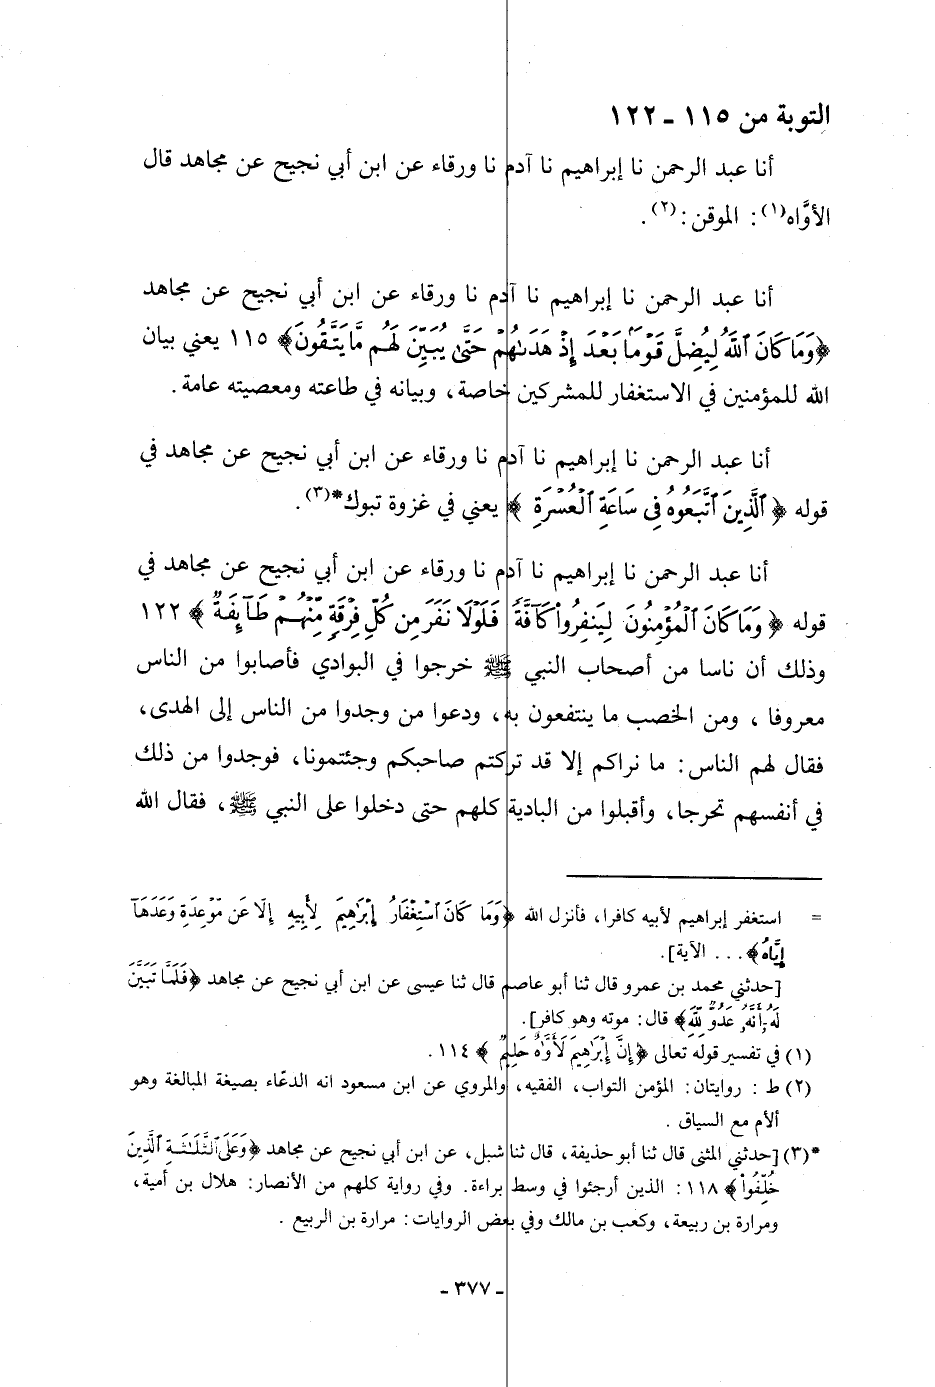 التوبة من ١١٥ ـ ١٢٢
أنا عبد الرحمن نا إبراهيم نا آدم نا ورقاء عن ابن أبي نجيح عن مجاهد قال
الأوَّاه(١): الموقن:(٢).
أنا عبد الرحمن نا إبراهيم نا آدم نا ورقاء عن ابن أبي نجيح عن مجاهد
﴿وَمَا كَانَ ٱللَّهُ لِيُضِلَّ قَوْمًا بَعْدَ إِذْ هَدَىٰهُمْ حَتَّىٰ يُبَيِّنَ لَهُم مَّا يَتَّقُونَ﴾ ١١٥ يعني بيان
الله للمؤمنين في الاستغفار للمشركين خاصة، وبيانه في طاعته ومعصيته عامة.
أنا عبد الرحمن نا إبراهيم نا آدم نا ورقاء عن ابن أبي نجيح عن مجاهد في
قوله ﴿ٱلَّذِينَ ٱتَّبَعُوهُ فِى سَاعَةِ ٱلْعُسْرَةِ﴾ يعني في غزوة تبوك*(٣).
أنا عبد الرحمن نا إبراهيم نا آدم نا ورقاء عن ابن أبي نجيح عن مجاهد في
قوله ﴿وَمَا كَانَ ٱلْمُؤْمِنُونَ لِيَنفِرُوا۟ كَآفَّةً فَلَوْلَا نَفَرَ مِن كُلِّ فِرْقَةٍ مِّنْهُمْ طَآئِفَةٌ﴾ ١٢٢
وذلك أن ناسا من أصحاب النبي ﷺ خرجوا في البوادي فأصابوا من الناس
معروفا ، ومن الخصب ما ينتفعون به، ودعوا من وجدوا من الناس إلى الهدى،
فقال لهم الناس: ما نراكم إلا قد تركتم صاحبكم وجئتمونا، فوجدوا من ذلك
في أنفسهم تحرجا، وأقبلوا من البادية كلهم حتى دخلوا على النبي ﷺ، فقال الله
= استغفر إبراهيم لأبيه كافرا، فأنزل الله ﴿وَمَا كَانَ ٱسْتِغْفَارُ إِبْرَٰهِيمَ لِأَبِيهِ إِلَّا عَن مَّوْعِدَةٍ وَعَدَهَآ
إِيَّاهُ﴾ ... الآية].
[حدثني محمد بن عمرو قال ثنا أبو عاصم قال ثنا عيسى عن ابن أبي نجيح عن مجاهد ﴿فَلَمَّا تَبَيَّنَ
لَهُۥٓ أَنَّهُۥ عَدُوٌّ لِّلَّهِ﴾ قال: موته وهو كافر].
(١) في تفسير قوله تعالى ﴿إِنَّ إِبْرَٰهِيمَ لَأَوَّٰهٌ حَلِيمٌ﴾ ١١٤.
(٢) ط : روايتان: المؤمن التواب، الفقيه، والمروي عن ابن مسعود انه الدعّاء بصيغة المبالغة وهو
ألأم مع السياق .
*(٣) [حدثني المثنى قال ثنا أبو حذيفة، قال ثنا شبل، عن ابن أبي نجيح عن مجاهد ﴿وَعَلَى ٱلثَّلَٰثَةِ ٱلَّذِينَ
خُلِّفُوا۟﴾ ١١٨: الذين أرجئوا في وسط براءة. وفي رواية كلهم من الأنصار: هلال بن أمية،
ومرارة بن ربيعة، وكعب بن مالك وفي بعض الروايات: مرارة بن الربيع .
ـ ٣٧٧ ـ